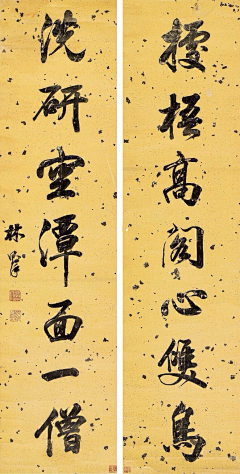 梧高阁心雙鳥
洗研空潭面一僧
林